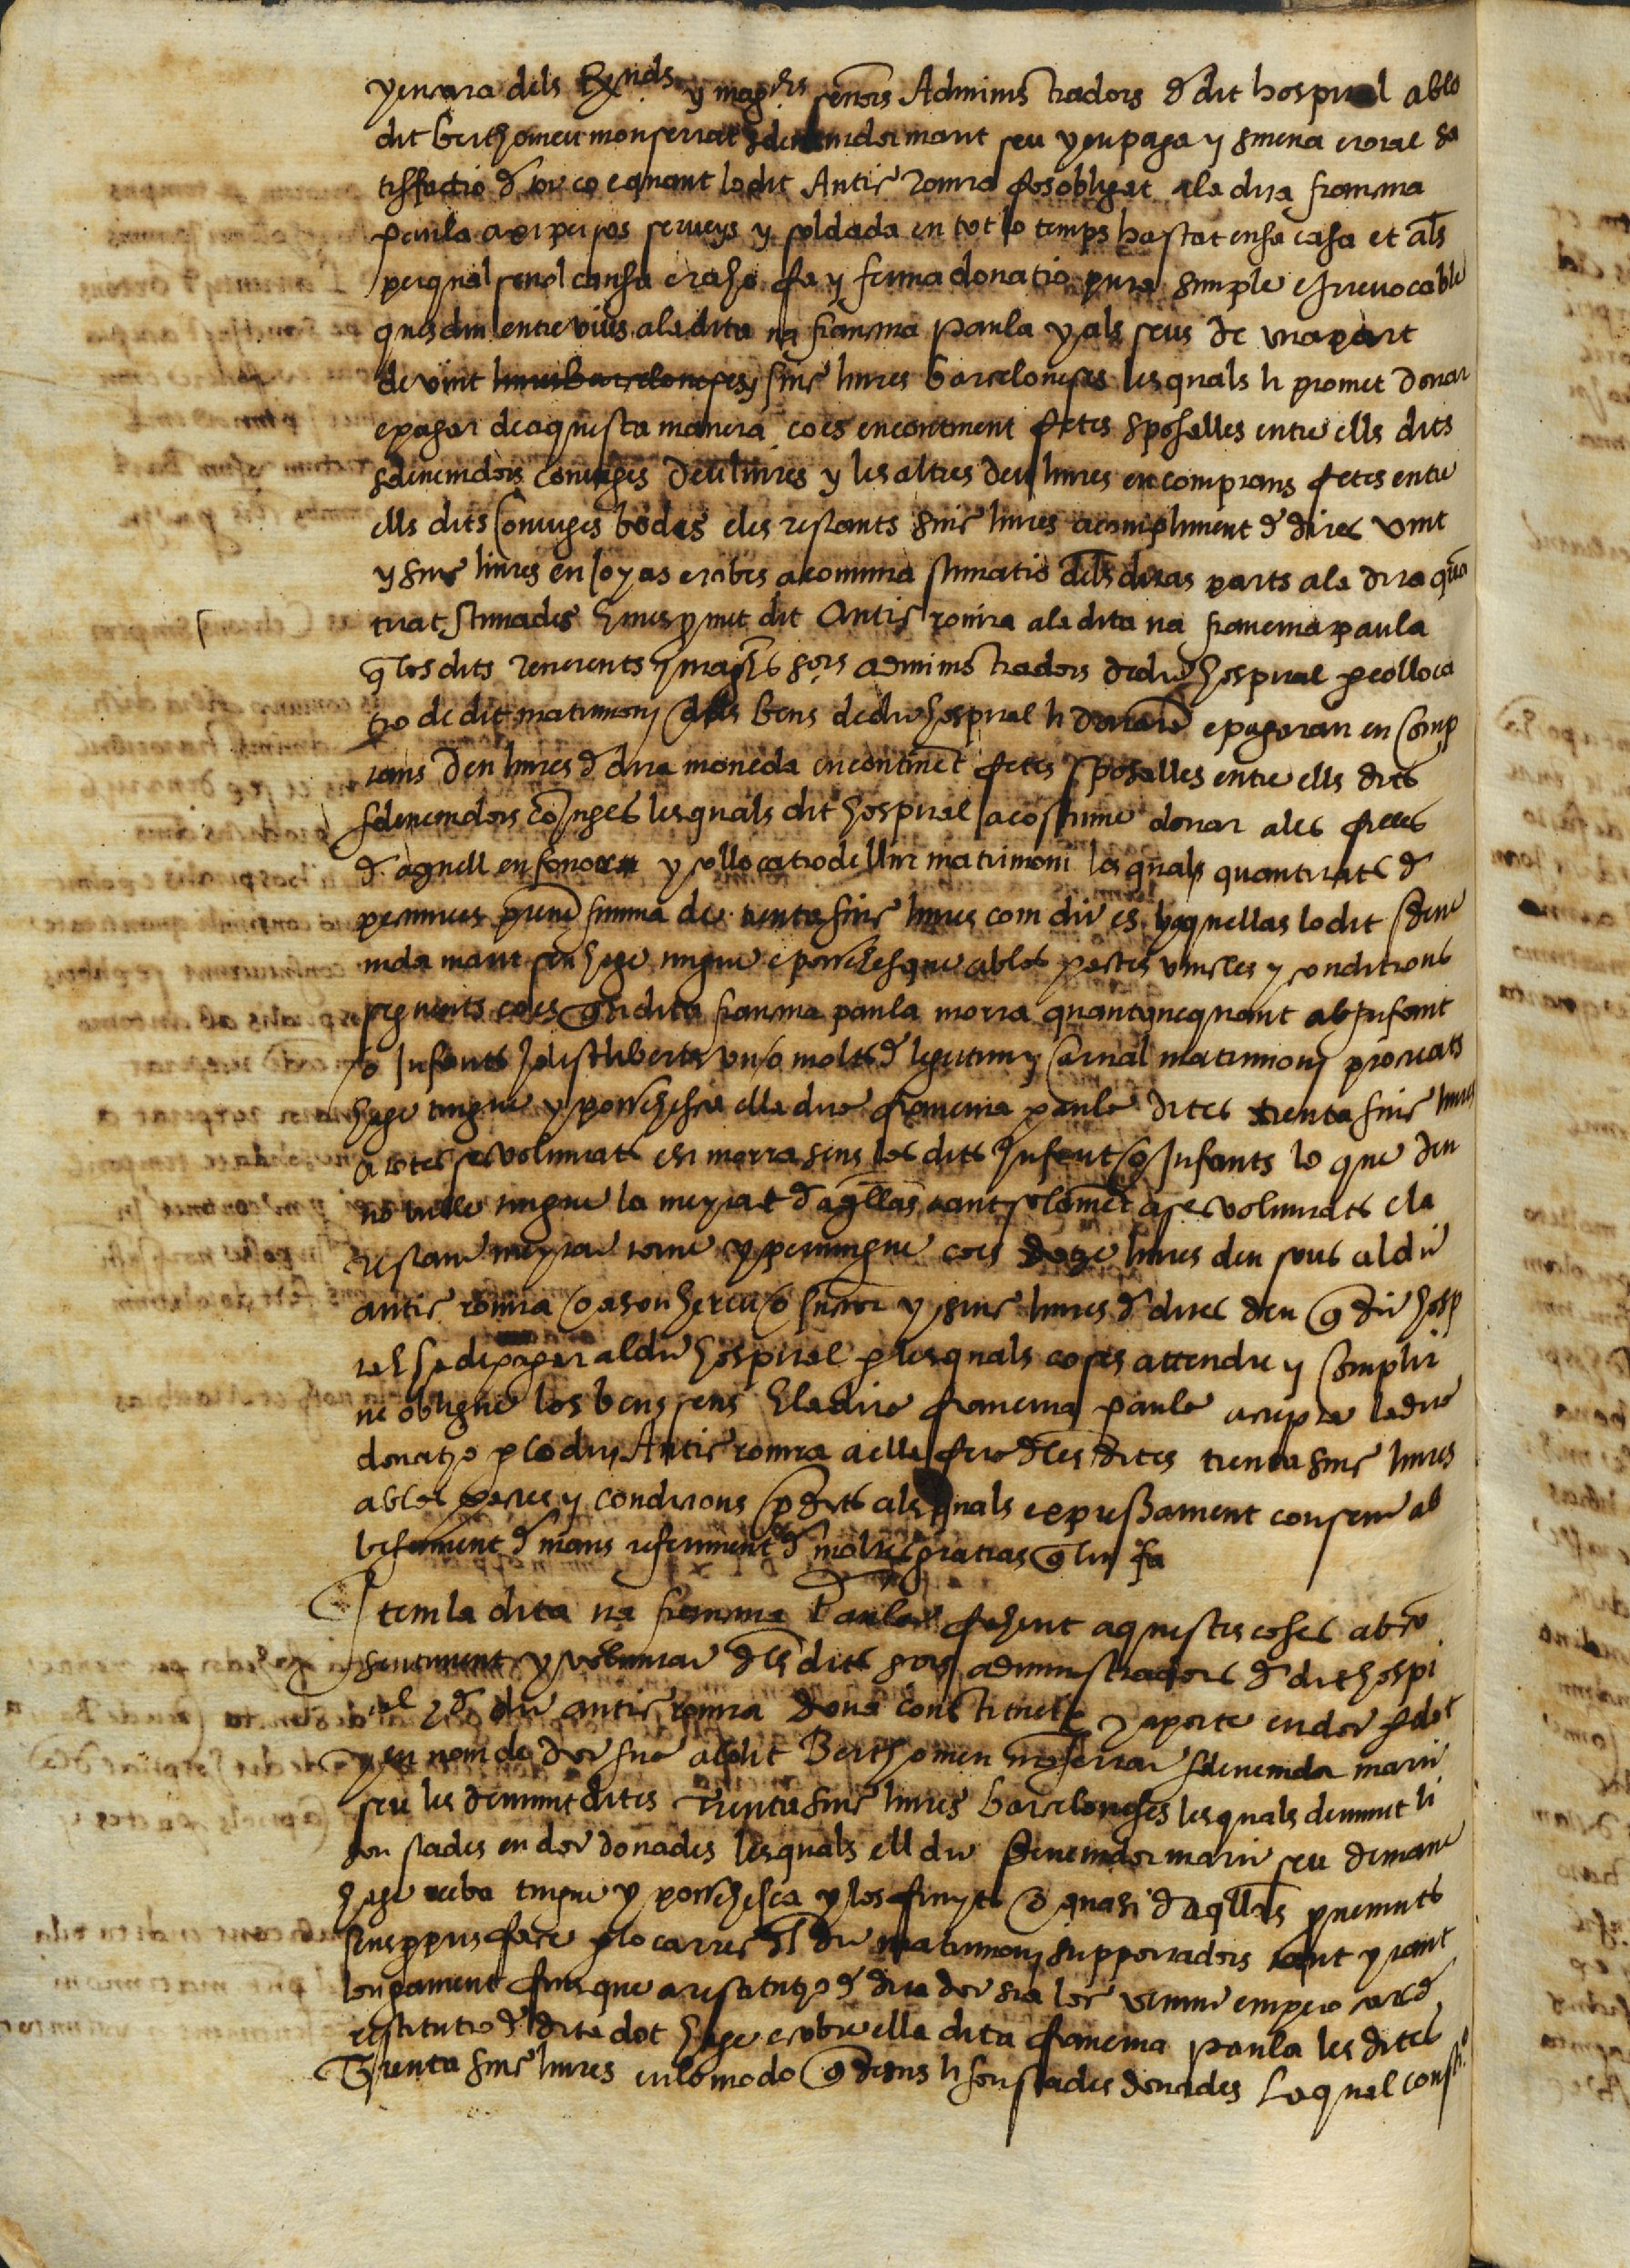 y encara dels R.nds y mag.chs señors Administradors d dit hospital ab lo
dit berthomeu monserrat sdevenidor marit seu y en paga y smena e total sa
tisfactio d tot ço e quant lo dit Antic romra fos obligat a la dita francina
Paula axi per sos serveys y soldada en tot lo temps ha stat en sa casa et als
per qual sevol causa e raho fa y ferma donatio pura simple e Irrevocable
ques diu entre vius a la dita na francina Paula y als seus de una part
de vint liures barceloneses y sinc liures barceloneses les quals li promet donar
e pagar de aquesta manera ço es encontinent fetes sposalles entre ells dits
sdevenidors conjuges deu liures y les altres deu liures en comptans fetes entre
ells dits Conjuges bodes e les restants sinc liures a compliment d dites vint
y sinc liures en Joyas e robes a comuna stimatio dels ditas parts a la dita quan
titat stimades E mes pmet dit Antic romra a la dita na francina paula
q los dits reverents y mag.chs s.ors administradors de dit hospital p colloca
tio de dit matrimonj dels bens de dit hospital li donaran e pagaran en Comp
tans deu liures d dita moneda encontinet fetes sposalles entre ells dits
sdevenidors Cojuges les quals dit hospital acostuma donar a les filles
d aquell en favor y collocatio de llur matrimoni les quals quantitats d
pecunies prene summa de trenta sinc liures com dit es y aquellas lo dit sdeve
nidor marit seu hage tingue e possehesque ab los pactes vincles y conditions
seguents ço es q si dita francina paula morra quant q ne quant ab Jnfant
o Jnfants hu o molts d legittim y Carnal matrimonj procreats
hage tingue y possehesca ella dita francina paula dites trenta sinc liures
a totes ses voluntats e si morra sens los dits Jnfant o Jnfants lo que deu
no vulle tingue la meytat d aqllas tant solamet a ses voluntats e la
restant meytat torne y pervingue ço es dotze liures deu sous al dit
antic romra o a son hereu o succor y sinc liures d dites deu q dit hosp
tal ha de pagar al dit hospital p les quals coses attendre y Complir
ne obligue los bens seus E la dita francina paula accepta la dita
donatio p lo dit Antic romra a ella feta d les dites trenta sinc liures
ab los pactes y conditions pdits als quals expressament consent ab
besament d mans referiment d moltes gratias q lin fa
Item la dita na francina Paula fahent aquestes coses ab co
sentiment y voluntat dels dits sors administradors d dit hospi
tal y d dit antic romra dona constitueix y aporta en dot p dot
y en nom de dot sua al dit Berthomeu moserrat sdevenidor marit
seu les demunt dites Trenta sinc liures barceloneses les quals demunt li
son stades en dot donades les quals ell dit sdevenidor marit seu demane
hage reeba tingue y possehesca y los fruyts o quasi d aqlls pvenints
seus ppris face p lo carrec del dit matrimonj supportadors tant y tant
longament fins que a restitutio d dita dot sia loc vinent empero cas d
restitutio d dita dot hage e cobre ella dita francina paula les dites
Trenta sinc liures en lo modo q demunt li son stades donades La qual const